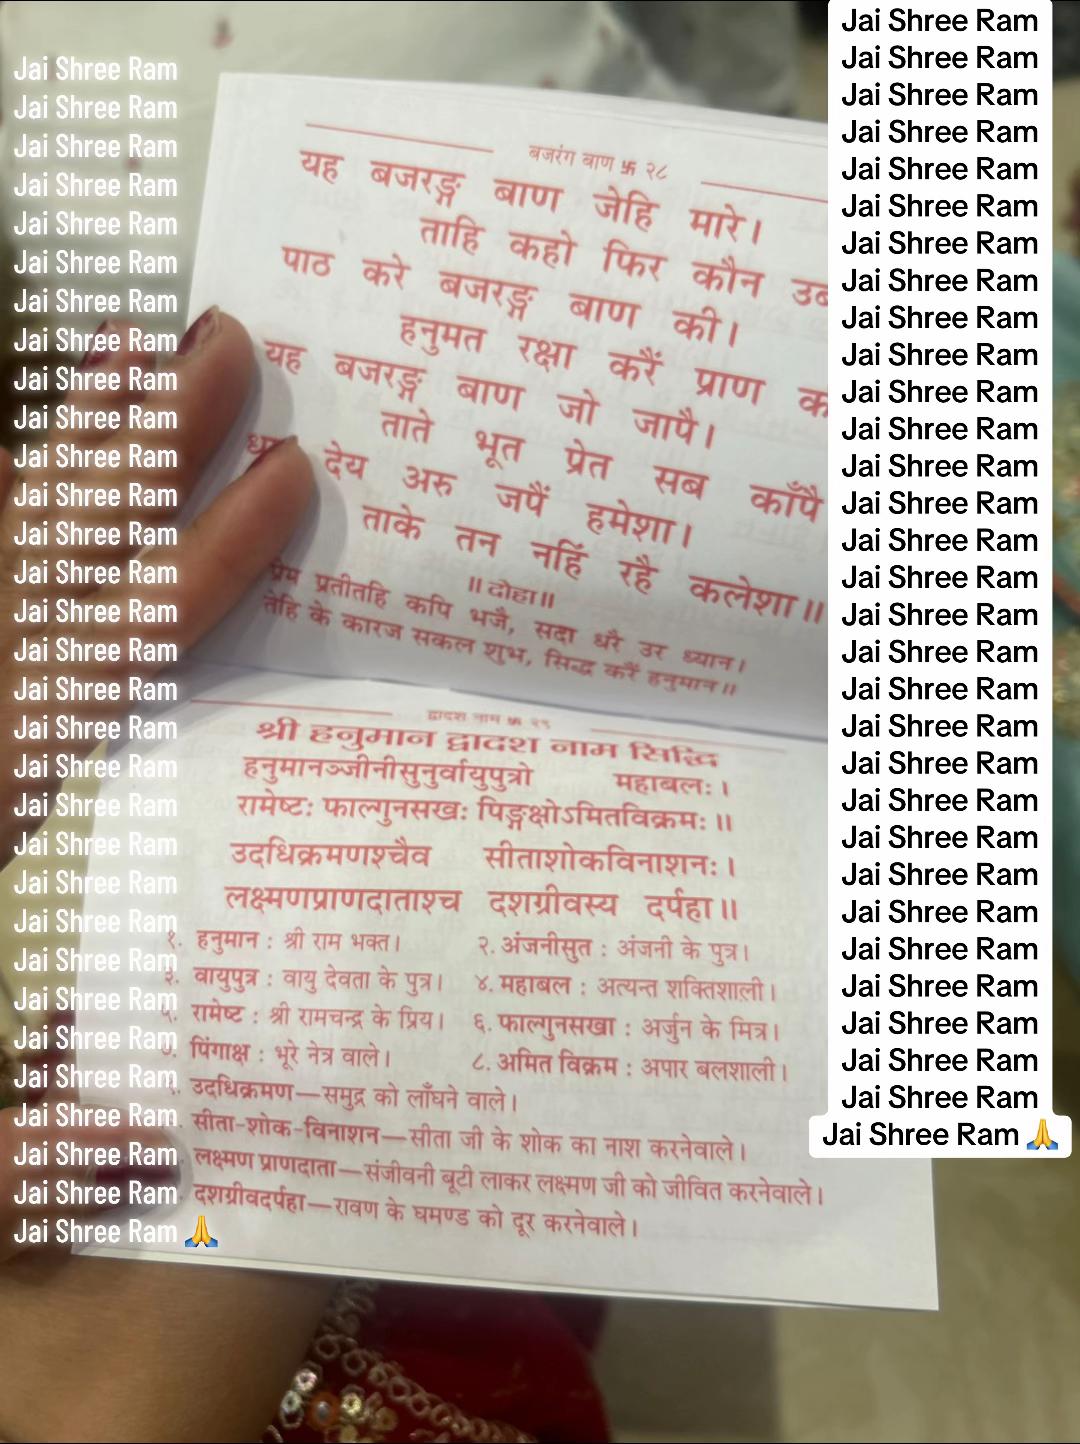 Jai Shree Ram
Jai Shree Ram
Jai Shree Ram
Jai Shree Ram
Jai Shree Ram
Jai Shree Ram
Jai Shree Ram
Jai Shree Ram
Jai Shree Ram
Jai Shree Ram
Jai Shree Ram
Jai Shree Ram
Jai Shree Ram
Jai Shree Ram
Jai Shree Ram
Jai Shree Ram
Jai Shree Ram
Jai Shree Ram
Jai Shree Ram
Jai Shree Ram
Jai Shree Ram
Jai Shree Ram
Jai Shree Ram
Jai Shree Ram
Jai Shree Ram
Jai Shree Ram
Jai Shree Ram
Jai Shree Ram
Jai Shree Ram
Jai Shree Ram
Jai Shree Ram 🙏
बजरंग बाण 卐 २८
यह बजरङ्ग बाण जेहि मारे।
ताहि कहो फिर कौन
पाठ करे बजरङ्ग बाण की।
हनुमत रक्षा करैं प्राण
यह बजरङ्ग बाण जो जापै।
ताते भूत प्रेत सब काँपै
देय अरु जपैं हमेशा।
ताके तन नहिं रहै कलेशा॥
॥दोहा॥
प्रेम प्रतीतहि कपि भजै, सदा धरै उर ध्यान।
तेहि के कारज सकल शुभ, सिद्ध करैं हनुमान॥
द्वादश नाम 卐 २९
श्री हनुमान द्वादश नाम सिद्धि
हनुमानञ्जीनीसुनुर्वायुपुत्रो महाबलः।
रामेष्टः फाल्गुनसखः पिङ्गक्षोऽमितविक्रमः॥
उदधिक्रमणश्चैव सीताशोकविनाशनः।
लक्ष्मणप्राणदाताश्च दशग्रीवस्य दर्पहा॥
१. हनुमान : श्री राम भक्त। २. अंजनीसुत : अंजनी के पुत्र।
३. वायुपुत्र : वायु देवता के पुत्र। ४. महाबल : अत्यन्त शक्तिशाली।
५. रामेष्ट : श्री रामचन्द्र के प्रिय। ६. फाल्गुनसखा : अर्जुन के मित्र।
७. पिंगाक्ष : भूरे नेत्र वाले। ८. अमित विक्रम : अपार बलशाली।
उदधिक्रमण—समुद्र को लाँघने वाले।
सीता-शोक-विनाशन—सीता जी के शोक का नाश करनेवाले।
लक्ष्मण प्राणदाता—संजीवनी बूटी लाकर लक्ष्मण जी को जीवित करनेवाले।
दशग्रीवदर्पहा—रावण के घमण्ड को दूर करनेवाले।
Jai Shree Ram
Jai Shree Ram
Jai Shree Ram
Jai Shree Ram
Jai Shree Ram
Jai Shree Ram
Jai Shree Ram
Jai Shree Ram
Jai Shree Ram
Jai Shree Ram
Jai Shree Ram
Jai Shree Ram
Jai Shree Ram
Jai Shree Ram
Jai Shree Ram
Jai Shree Ram
Jai Shree Ram
Jai Shree Ram
Jai Shree Ram
Jai Shree Ram
Jai Shree Ram
Jai Shree Ram
Jai Shree Ram
Jai Shree Ram
Jai Shree Ram
Jai Shree Ram
Jai Shree Ram
Jai Shree Ram
Jai Shree Ram
Jai Shree Ram
Jai Shree Ram 🙏